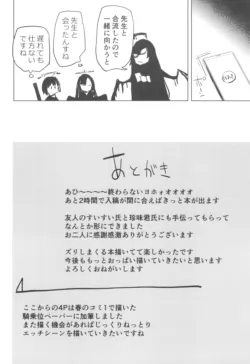 先生と
合流したので
一緒に向かうと
先生と
会ったんすね
遅れても
仕方ない
ですね
あとがき
あひ～～～～終わらないヨホォオオオオ
あと2時間で入稿が間に合えばきっと本が出ます
友人のすいすい氏と珍味君氏にも手伝ってもらって
なんとか形にできました
お二人に感謝感激ありがとうございます
ズリしまくる本描いてて楽しかったです
今後ももっとおっぱい描いていきたいと思います
よろしくおねがいします
ここからの4Pは春のコミ1で描いた
騎乗位ペーパーに加筆しました
また描く機会があればじっくりねっとり
エッチシーンを描いていきたいですね